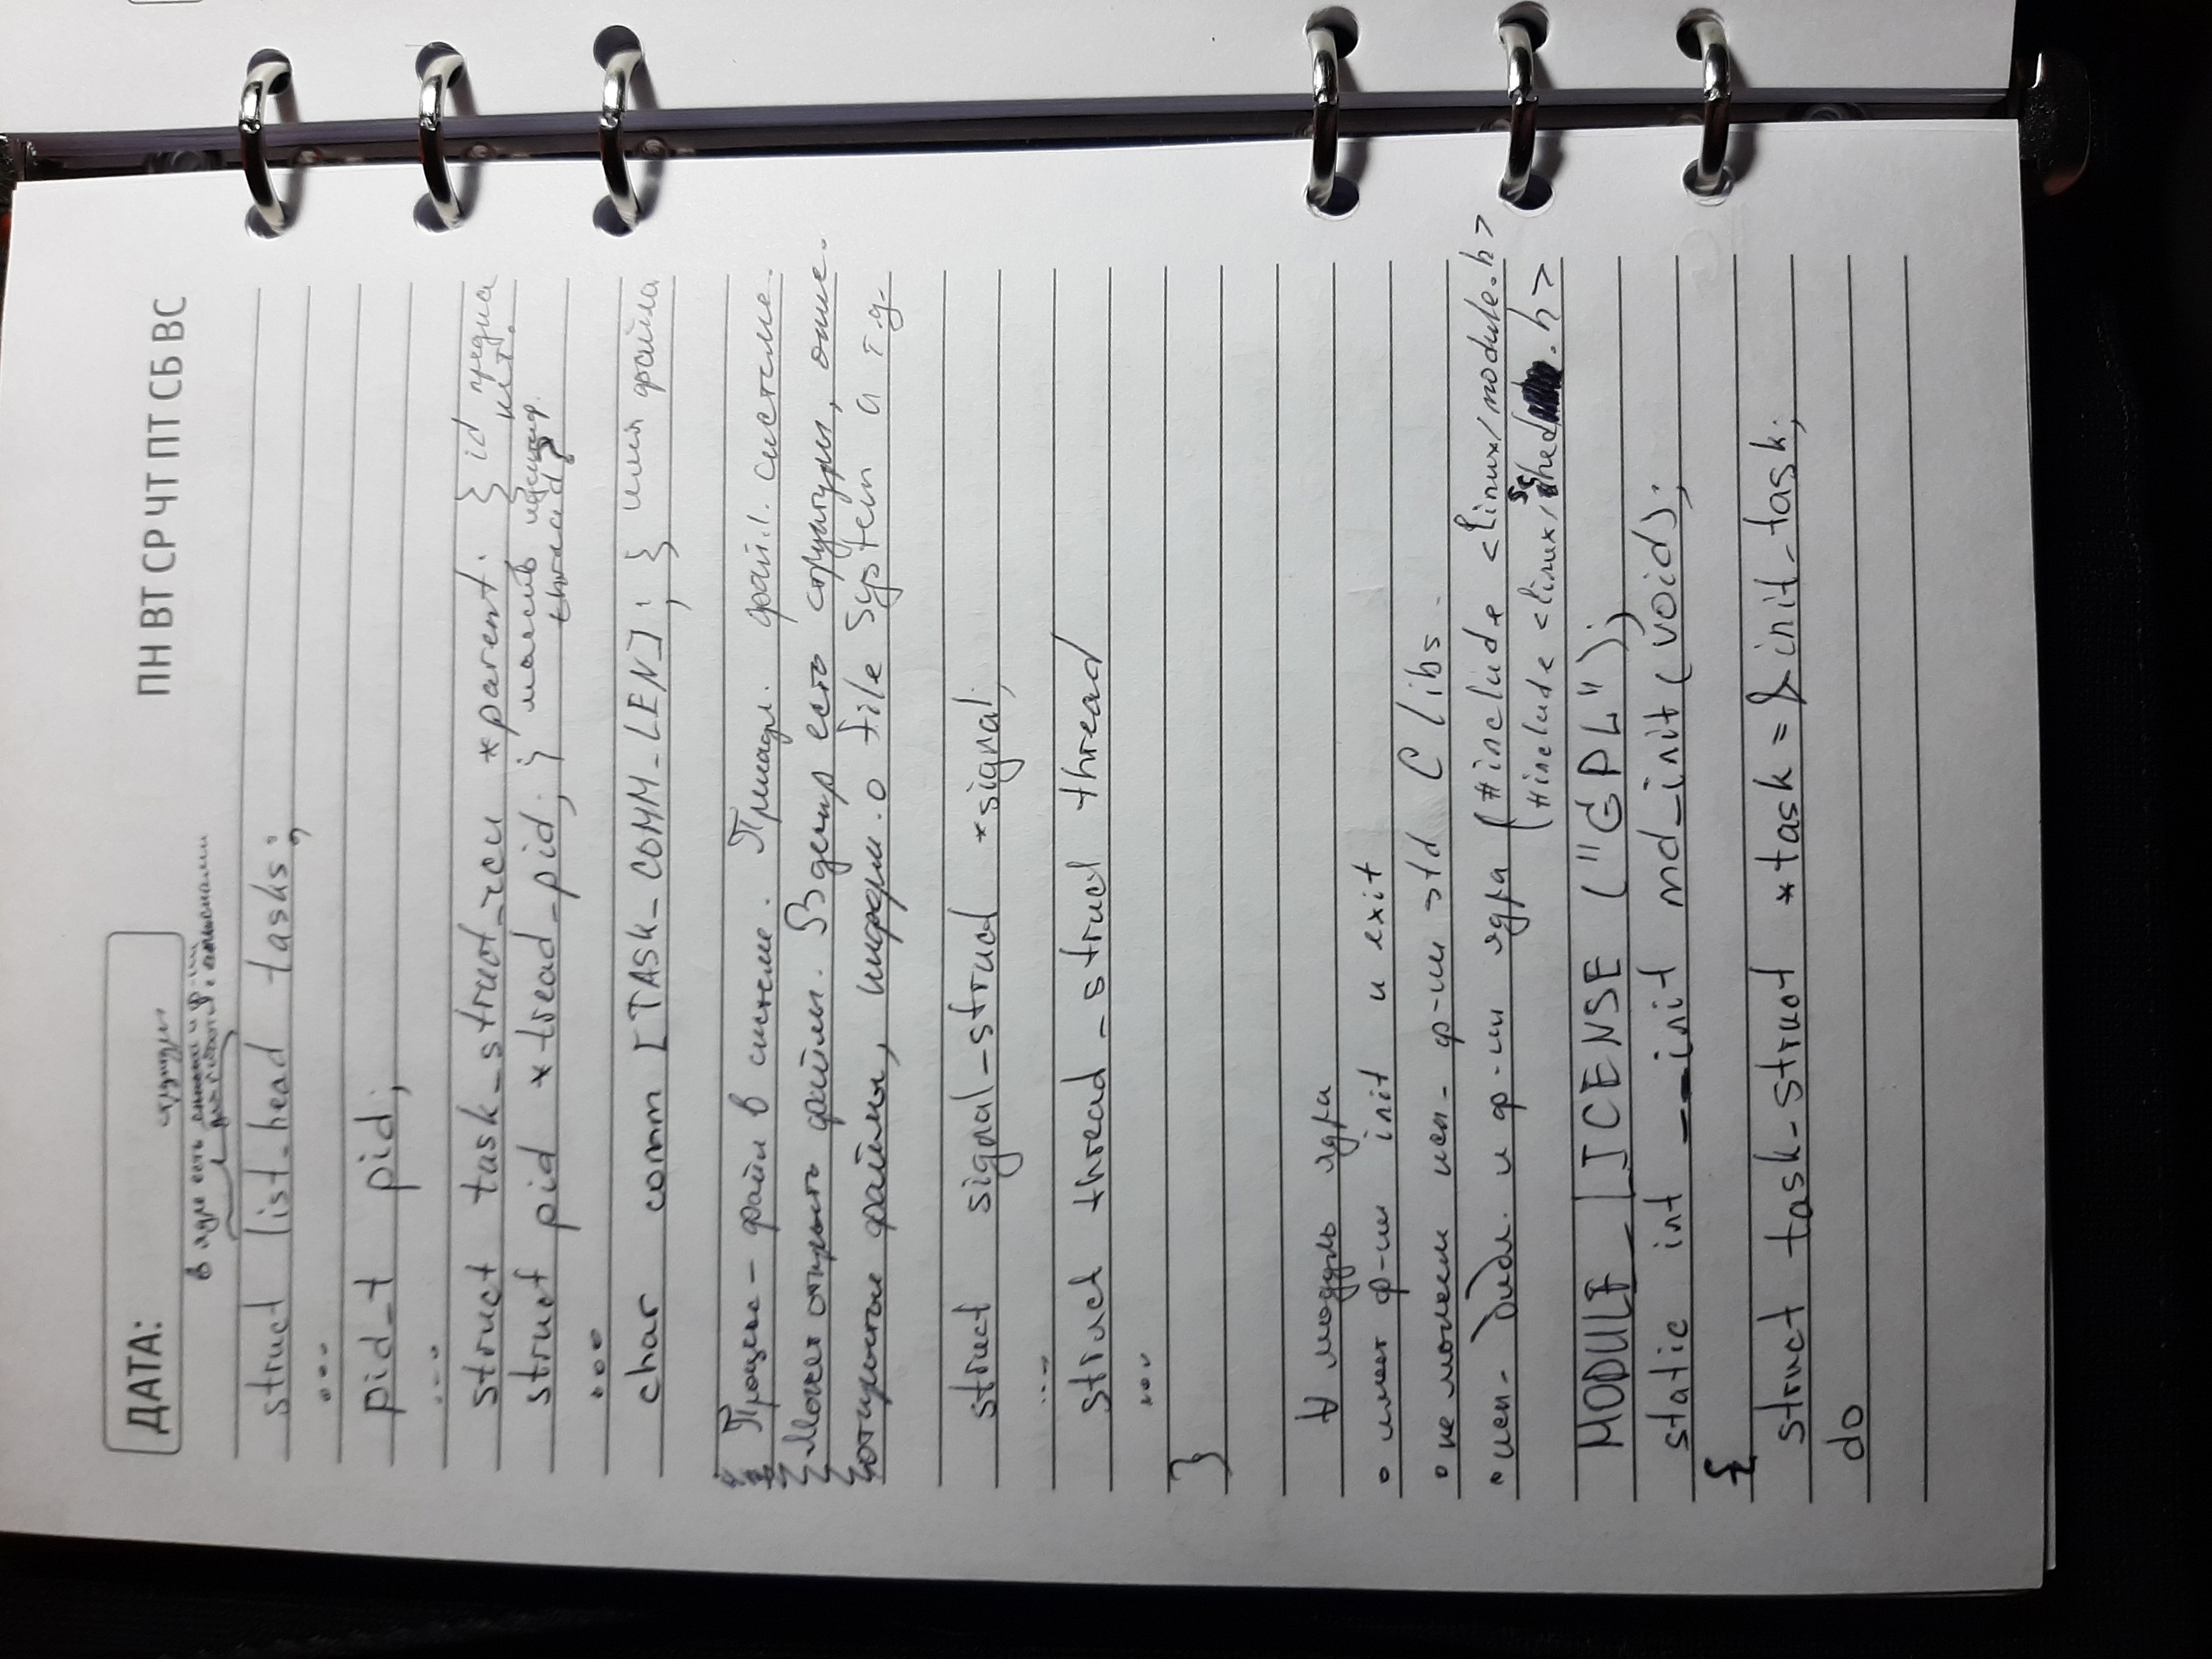 ДАТА: ПН ВТ СР ЧТ ПТ СБ ВС
в ядре есть структуры
struct list_head tasks;
...
pid_t pid;
...
struct task_struct_rcu *parent; } id предка
struct pid *tread_pid; } массив идентиф.
thread
...
char comm [TASK_COMM_LEN]; } имя файла
Процесс - файл в системе. Принадл. файл. системе.
Может открыть файлы. В дескр есть структуры, опис.
открытые файлы, информ. о file system и т.д.
struct signal_struct *signal;
...
struct thread_struct thread
...
}
∀ модуль ядра
• имеет ф-ии init и exit
• не можем исп. ф-ии std C libs.
• исп. библ. и ф-ии ядра { #include <linux/module.h>
#include <linux/sched.h>
MODULE_LICENSE ("GPL");
static int __init md_init (void);
{
struct task_struct *task = &init_task;
do